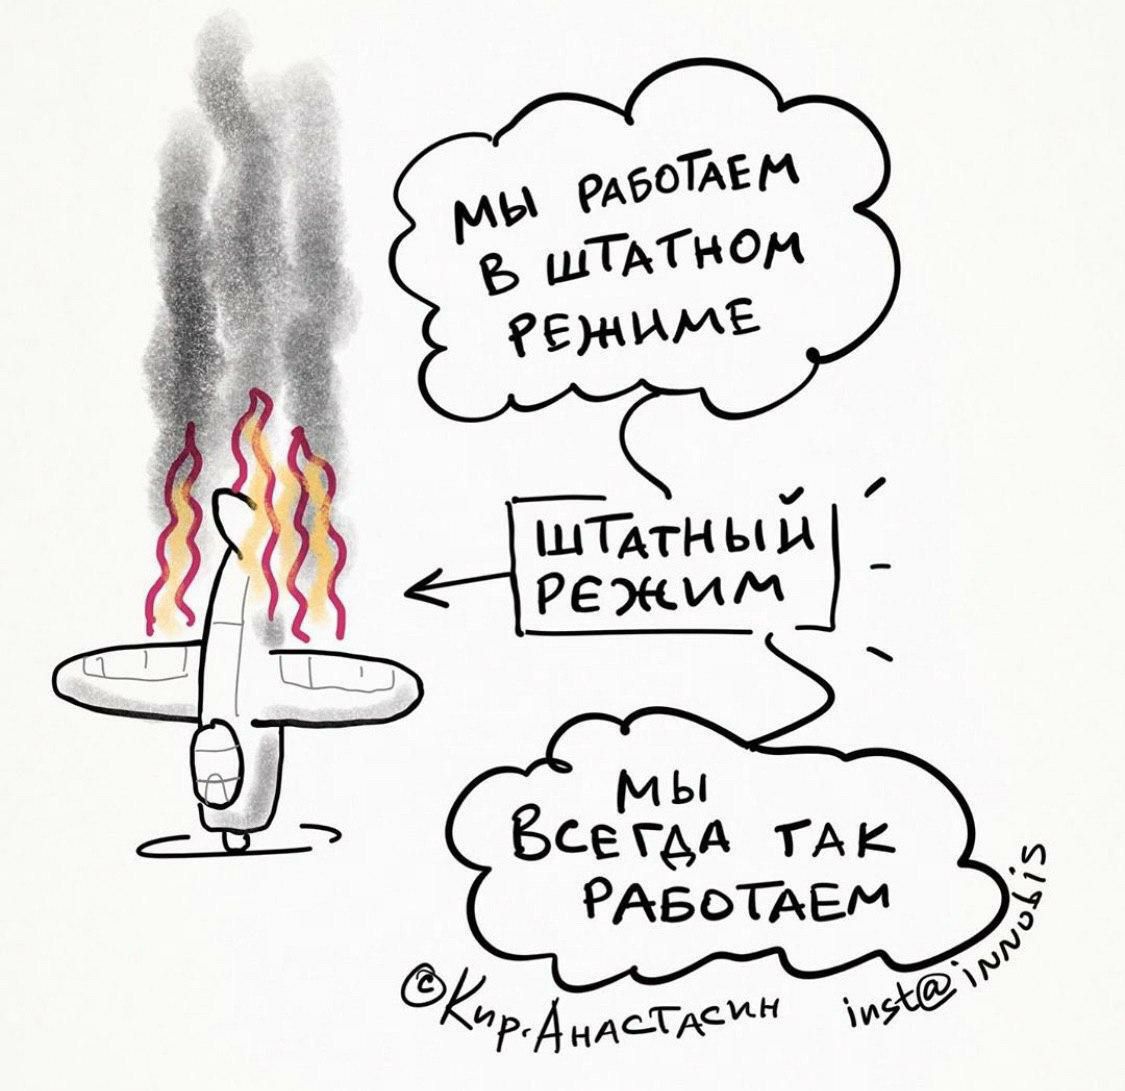 МЫ РАБОТАЕМ
В ШТАТНОМ
РЕЖИМЕ
ШТАТНЫЙ
РЕЖИМ
МЫ
ВСЕГДА ТАК
РАБОТАЕМ
© Кир.Анастасин
inst@innubis